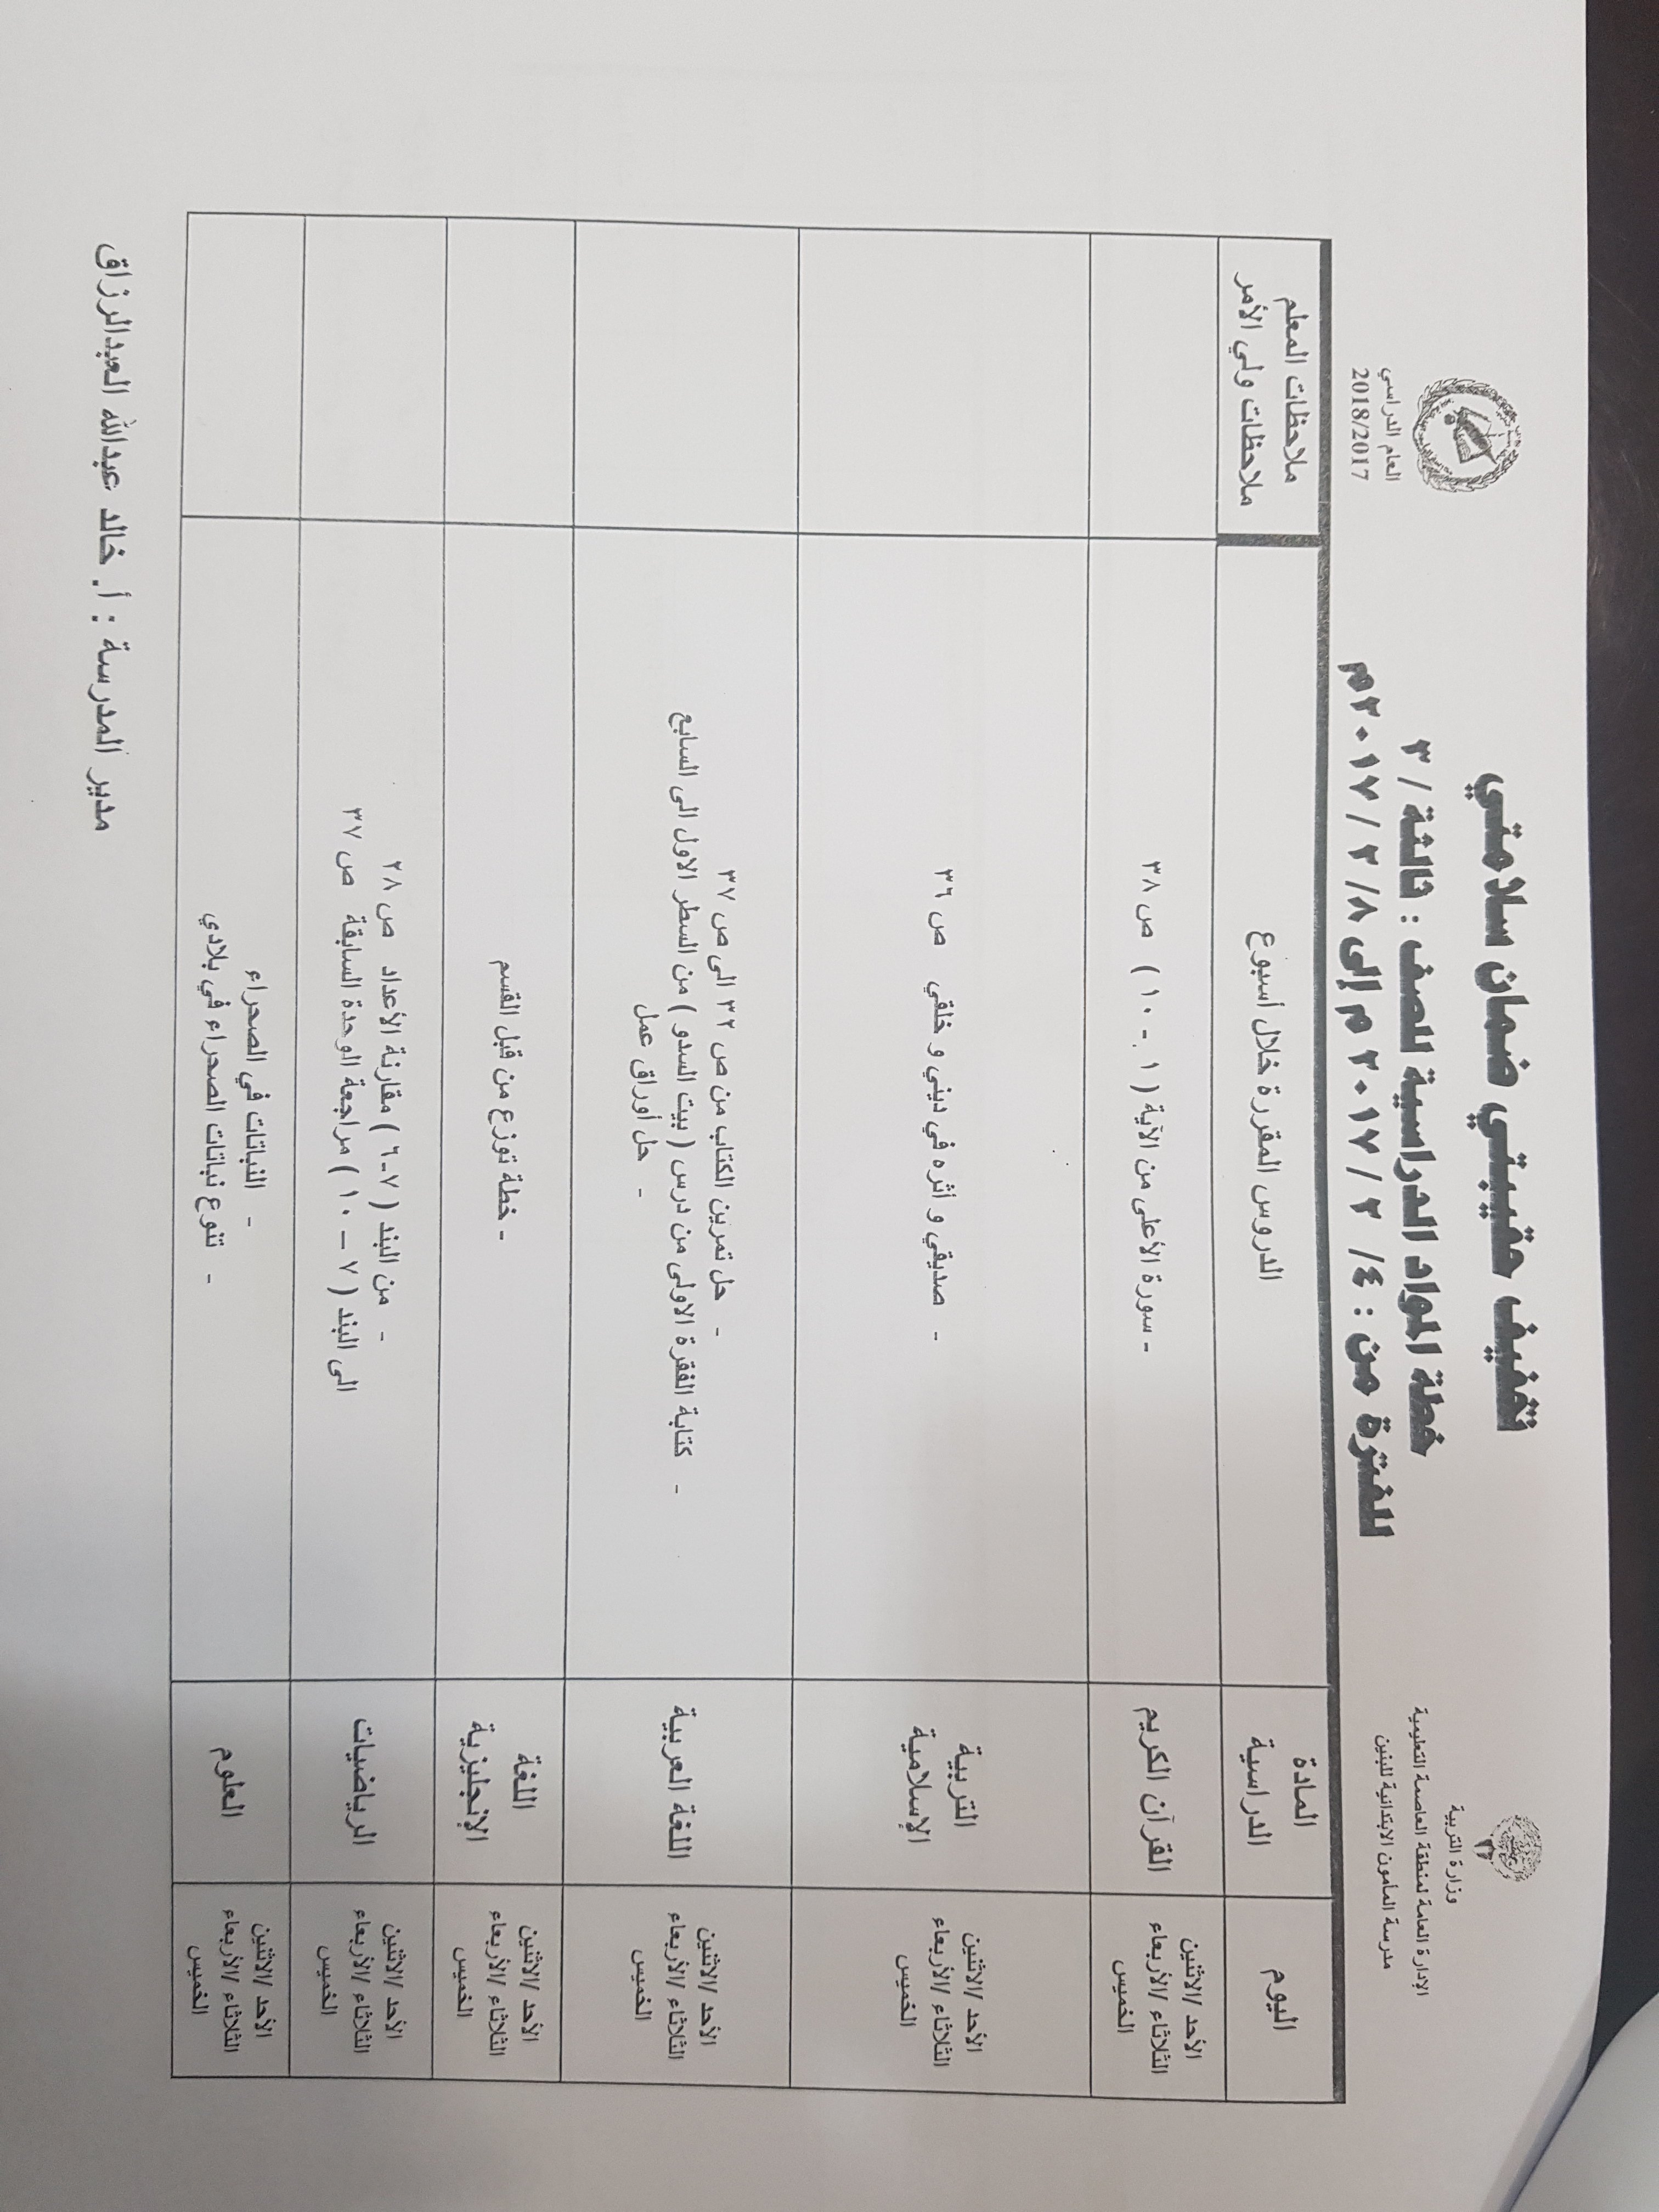 وزارة التربية
الإدارة العامة لمنطقة العاصمة التعليمية
مدرسة المأمون الابتدائية للبنين
تخفيف حقيبتي ضمان سلامتي
خطة المواد الدراسية للصف : ثالثة / ٣
للفترة من : ٤/ ٢ / ٢٠١٧ م إلى ٨/ ٢ / ٢٠١٧م
العام الدراسي
2018/2017
اليوم
المادة
الدراسية
الدروس المقررة خلال أسبوع
ملاحظات المعلم
ملاحظات ولي الأمر
الأحد /الاثنين
الثلاثاء /الأربعاء
الخميس
القرآن الكريم
- سورة الأعلى من الآية ( ١ - ١٠ ) ص ٣٨
الأحد /الاثنين
الثلاثاء /الأربعاء
الخميس
التربية
الإسلامية
- صديقي و أثره في ديني و خلقي ص ٣٦
الأحد /الاثنين
الثلاثاء /الأربعاء
الخميس
اللغة العربية
- حل تمرين الكتاب من ص ٣٢ الى ص ٣٧
- كتابة الفقرة الاولى من درس ( بيت السدو ) من السطر الاول الى السابع
- حل أوراق عمل
الأحد /الاثنين
الثلاثاء /الأربعاء
الخميس
اللغة
الإنجليزية
- خطة توزع من قبل القسم
الأحد /الاثنين
الثلاثاء /الأربعاء
الخميس
الرياضيات
- من البند ( ٧-٦ ) مقارنة الأعداد ص ٢٨
الى البند ( ٧ – ١٠ ) مراجعة الوحدة السابقة ص ٣٧
الأحد /الاثنين
الثلاثاء /الأربعاء
الخميس
العلوم
- النباتات في الصحراء
- تنوع نباتات الصحراء في بلادي
مدير المدرسة : أ. خالد عبدالله العبدالرزاق